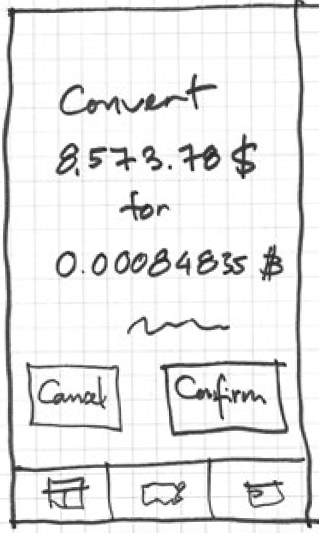 Convert
8,573.78 $
for
0.00084835 ₿
Cancel
Confirm